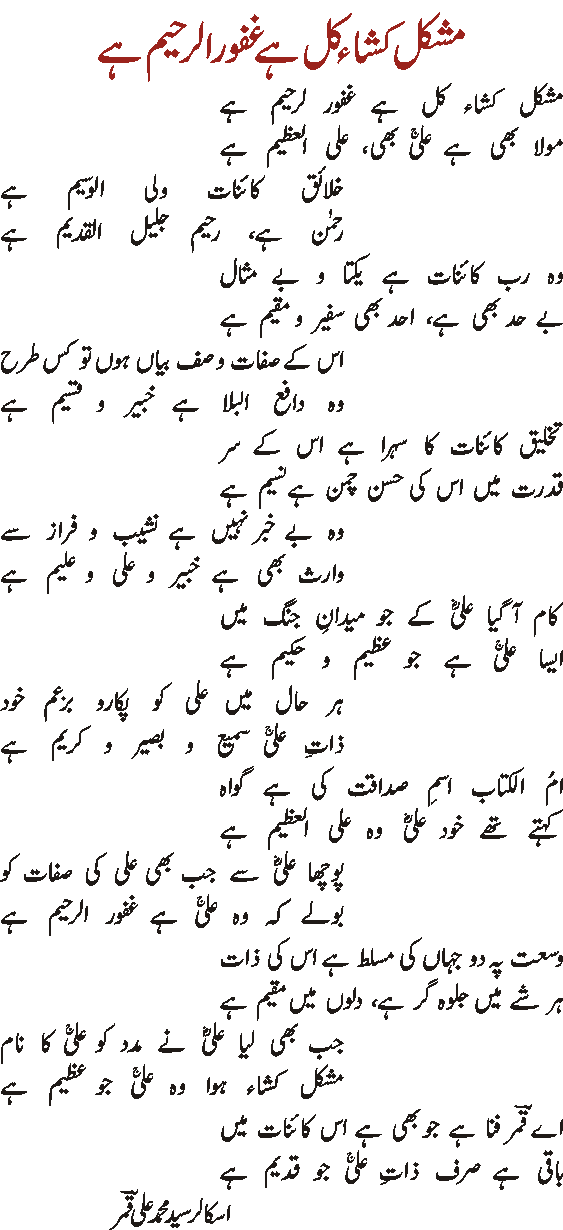 مشکل کشاء کل ہے غفور الرحیم ہے
مشکل کشاء کل ہے غفور لرحیم ہے
مولا بھی ہے علیؑ بھی، علی العظیم ہے
خلائق کائنات ولی الوسیم ہے
رحمٰن ہے، رحیم جلیل القدیم ہے
وہ رب کائنات ہے یکتا و بے مثال
بے حد بھی ہے، احد بھی سفیر و مقیم ہے
اس کے صفات وصف بیاں ہوں تو کس طرح
وہ دافع البلا ہے خبیر و قسیم ہے
تخلیق کائنات کا سہرا ہے اس کے سر
قدرت میں اس کی حسن چمن ہے نسیم ہے
وہ بے خبر نہیں ہے نشیب و فراز سے
وارث بھی ہے خبیر و علی و علیم ہے
کام آگیا علیؑ کے جو میدانِ جنگ میں
ایسا علیؑ ہے جو عظیم و حکیم ہے
ہر حال میں علی کو پکارو بزعم خود
ذاتِ علیؑ سمیع و بصیر و کریم ہے
امُ الکتاب اسمِ صداقت کی ہے گواہ
کہتے تھے خود علیؑ وہ علی العظیم ہے
پوچھا علیؑ سے جب بھی علی کی صفات کو
بولے کہ وہ علیؑ ہے غفور الرحیم ہے
وسعت پہ دو جہاں کی مسلط ہے اس کی ذات
ہر شے میں جلوہ گر ہے، دلوں میں مقیم ہے
جب بھی لیا علیؑ نے مدد کو علیؑ کا نام
مشکل کشاء ہوا وہ علیؑ جو عظیم ہے
اے قمرؔ فنا ہے جو بھی ہے اس کائنات میں
باقی ہے صرف ذاتِ علیؑ جو قدیم ہے
اسکالر سید محمد علی قمرؔ